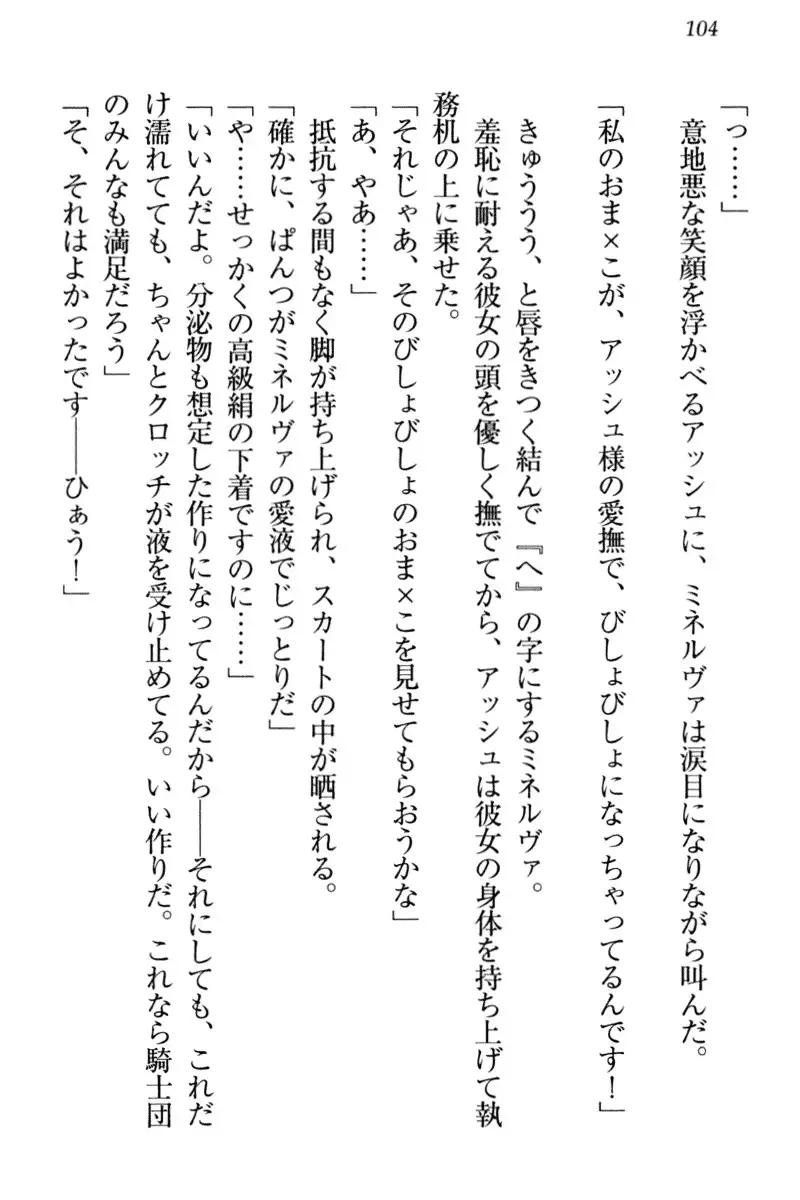 104
「っ……」
意地悪な笑顔を浮かべるアッシュに、ミネルヴァは涙目になりながら叫んだ。
「私のおま×こが、アッシュ様の愛撫で、びしょびしょになっちゃってるんです！」
きゅううう、と唇をきつく結んで『へ』の字にするミネルヴァ。
羞恥に耐える彼女の頭を優しく撫でてから、アッシュは彼女の身体を持ち上げて執
務机の上に乗せた。
「それじゃあ、そのびしょびしょのおま×こを見せてもらおうかな」
「あ、やあ……」
抵抗する間もなく脚が持ち上げられ、スカートの中が晒される。
「確かに、ぱんつがミネルヴァの愛液でじっとりだ」
「や……せっかくの高級絹の下着ですのに……」
「いいんだよ。分泌物も想定した作りになってるんだから――それにしても、これだ
け濡れてても、ちゃんとクロッチが液を受け止めてる。いい作りだ。これなら騎士団
のみんなも満足だろう」
「そ、それはよかったです――ひぁう！」